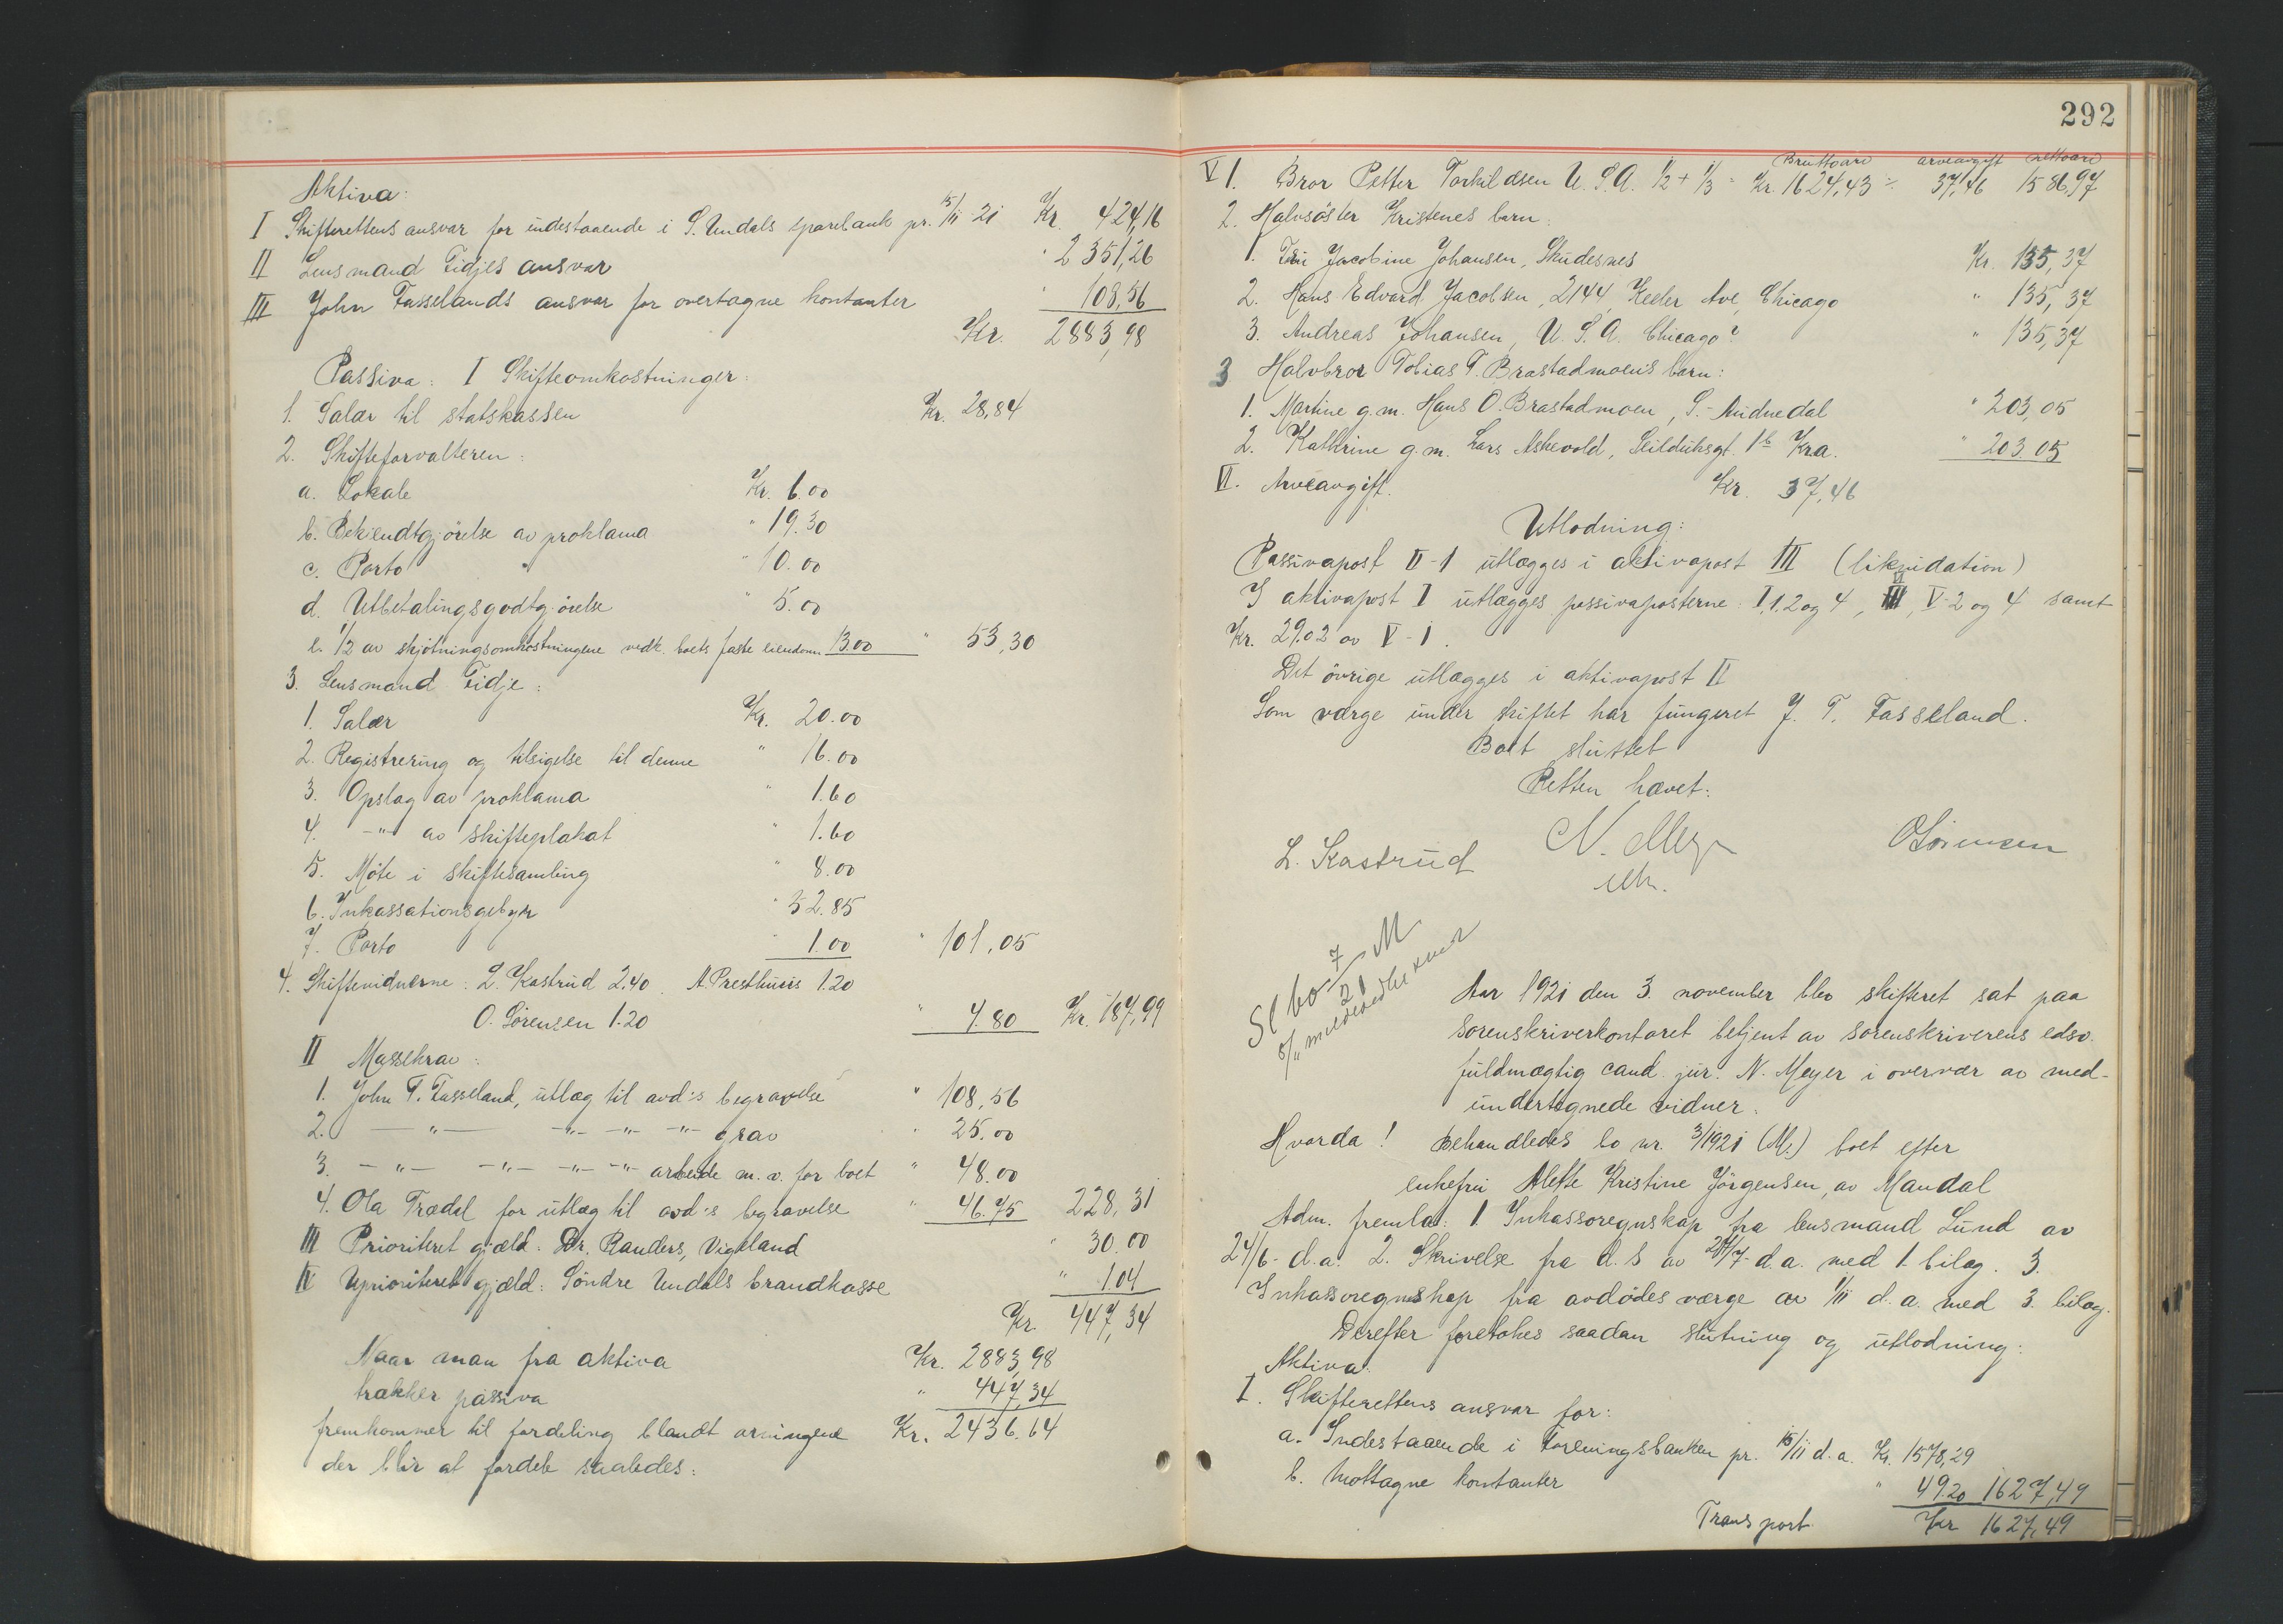 Aktiva:
I Skifterettens ansvar for indestaaende i S. Undals sparebank pr. 15/11 21 Kr. 424,16
II Lensmand Fidjes ansvar " 2351,26
III John Fasselands ansvar for overtagne kontanter " 108,56
Kr. 2883,98
Passiva: I Skifteomkostninger:
1. Salær til statskassen Kr. 28,84
2. Skifteforvalteren:
a. Lokale Kr. 6.00
b. Bekjendtgjörelse av proklama " 19.30
c. Porto " 10.00
d. Utbetalingsgodtgjörelse " 5.00
e. 1/2 av skjötningsomkostningene vedk. boets faste eiendom 13.00 " 53,30
3. Lensmand Fidje:
1. Salær Kr. 20.00
2. Registrering og tilsigelse til denne " 16.00
3. Opslag av proklama " 1.60
4. -"- av skifteplakat " 1.60
5. Möte i skiftesamling " 8.00
6. Inkassationsgebyr " 52.85
7. Porto " 1.00 " 101,05
4. Skiftevidnerne: L. Kastrud 2.40. A. Presthuus 1.20
O. Sörensen 1.20 " 4.80 Kr. 187,99
II Massekrav:
1. John T. Fasseland, utlæg til avd:s begravelse " 108,56
2. -"- -"- -"- -"- grav " 25.00
3. -"- -"- -"- -"- arbeide m.v. for boet " 48.00
4. Ola Trædal for utlæg til avd:s begravelse " 46.75 228,31
III Prioritert gjæld: Dr. Randers, Vigeland " 30.00
IV Uprioritert gjæld: Söndre Undals brandkasse " 1.04
Kr. 447,34
Naar man fra aktiva Kr. 2883,98
trækker passiva " 447,34
fremkommer til fordeling blandt arvingene Kr. 2436.64
der blir at fordele saaledes:
292
Bruttoarv arveavgift nettoarv
V 1. Bror Petter Torkildsen U.S.A. 1/2 + 1/3 = Kr. 1624,43 ÷ 37,46 1586,97
2. Halvsöster Kristenes barn:
1. Fru Jacobine Johansen, Skudesnes Kr. 135,37
2. Hans Edvard Jacobsen, 2144, Keeler Ave, Chicago " 135,37
3. Andreas Johansen, U.S.A. Chicago? " 135,37
3 Halvbror Tobias T. Brastadmoens barn:
1. Martine g.m. Hans O. Brastadmoen, S.-Audnedal " 203,05
2. Kathrine g.m. Lars Askevold, Seilduksgt. 1b Kra. " 203.05
VI. Arveavgift. Kr. 37,46
Utlodning:
Passivapost II-1 utlægges i aktivapost III (likvidation)
I aktivapost I utlægges passivaposterne I, 1.2 og 4, VI, V-2 og 4 samt
Kr. 29.02 av V-1.
Det övrige utlægges i aktivapost II
Som værge under skiftet har fungeret J. T. Fasseland.
Boet sluttet
Retten hævet:
L. Kastrud N. Meyer O Sörensen
Slbo 7/21 M
Aar 1921 den 3. november blev skifteret sat paa
sorenskriverkontoret betjent av sorenskriverens edsv.
fuldmægtig cand. jur. N. Meyer i overvær av med-
undertegnede vidner.
Hvorda! Behandledes bo nr. 3/1921 (M.) boet efter
enkefru Alette Kristine Jörgensen, av Mandal
Adm. fremla: 1. Inkassoregnskap fra lensmand Lund av
24/6- d.a. 2. Skrivelse fra d.s av 24/7- d.a. med 1 bilag. 3.
Inkassoregnskap fra avdödes værge av 1/11 d.a. med 3. bilag.
Derefter foretokes saadan slutning og utlodning:
Aktiva:
I. Skifterettens ansvar for:
a. Indestaaende i Foreningsbanken pr. 15/11 d.a. Kr. 1578,29
b. Mottagne kontanter " 49.20 1627,49
Transport. Kr 1627,49